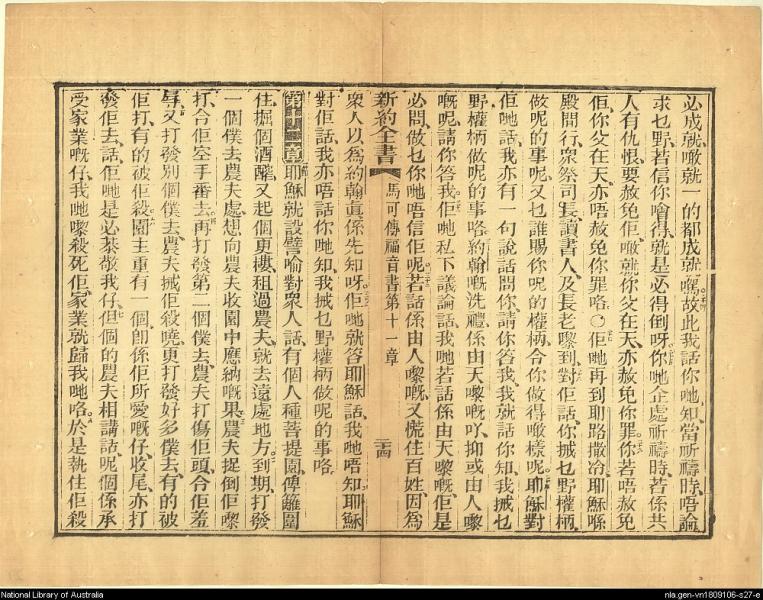 必成就噉就一的都成就嘅故此我話你哋知當祈禱時唔論
求乜野若信你噲得就是必得倒呀你哋企處祈禱時若係共
人有仇恨要赦免佢噉就你父在天亦赦免你罪你若唔赦免
佢你父在天亦唔赦免你罪咯〇佢哋再到耶路撒冷耶穌喺
殿開行衆祭司長讀書人及長老嚟到對佢話你㧜乜野權柄
做呢的事呢又乜誰賜你呢的權柄令你做得噉樣呢耶穌對
佢哋話我亦有一句說話問你請你答我我就話你知我㧜乜
野權柄做呢的事咯約翰嘅洗禮係由天嚟嘅吖抑或由人嚟
嘅呢請你答我佢哋私下議論話我哋若話係由天嚟嘅佢是
必問做乜你哋唔信佢呢若話係由人嚟嘅又慌住百姓因爲
新約全書 馬可傳福音書第十一章 二十四
衆人以爲約翰眞係先知呀佢哋就答耶穌話我哋唔知耶穌
對佢話我亦唔話你哋知我㧜乜野權柄做呢的事咯
第十二章耶穌就設譬喻對衆人話有個人種菩提園傅籬圍
住掘個酒醡又起個更樓租過農夫就去遠處地方到期打發
一個僕去農夫處想向農夫收園中應納嘅果農夫捉倒佢嚟
打令佢空手番去再打發第二個僕去農夫打傷佢頭令佢羞
辱又打發別個僕去農夫㧜佢殺曉更打發好多僕去有的被
佢打有的被佢殺園主重有一個卽係佢所愛嘅仔收尾亦打
發佢去話佢哋是必恭敬我仔但個的農夫相講話呢個係承
受家業嘅仔我哋嚟殺死佢家業就歸我哋咯於是執住佢殺
National Library of Australia
nla.gen-vn1809106-s27-e